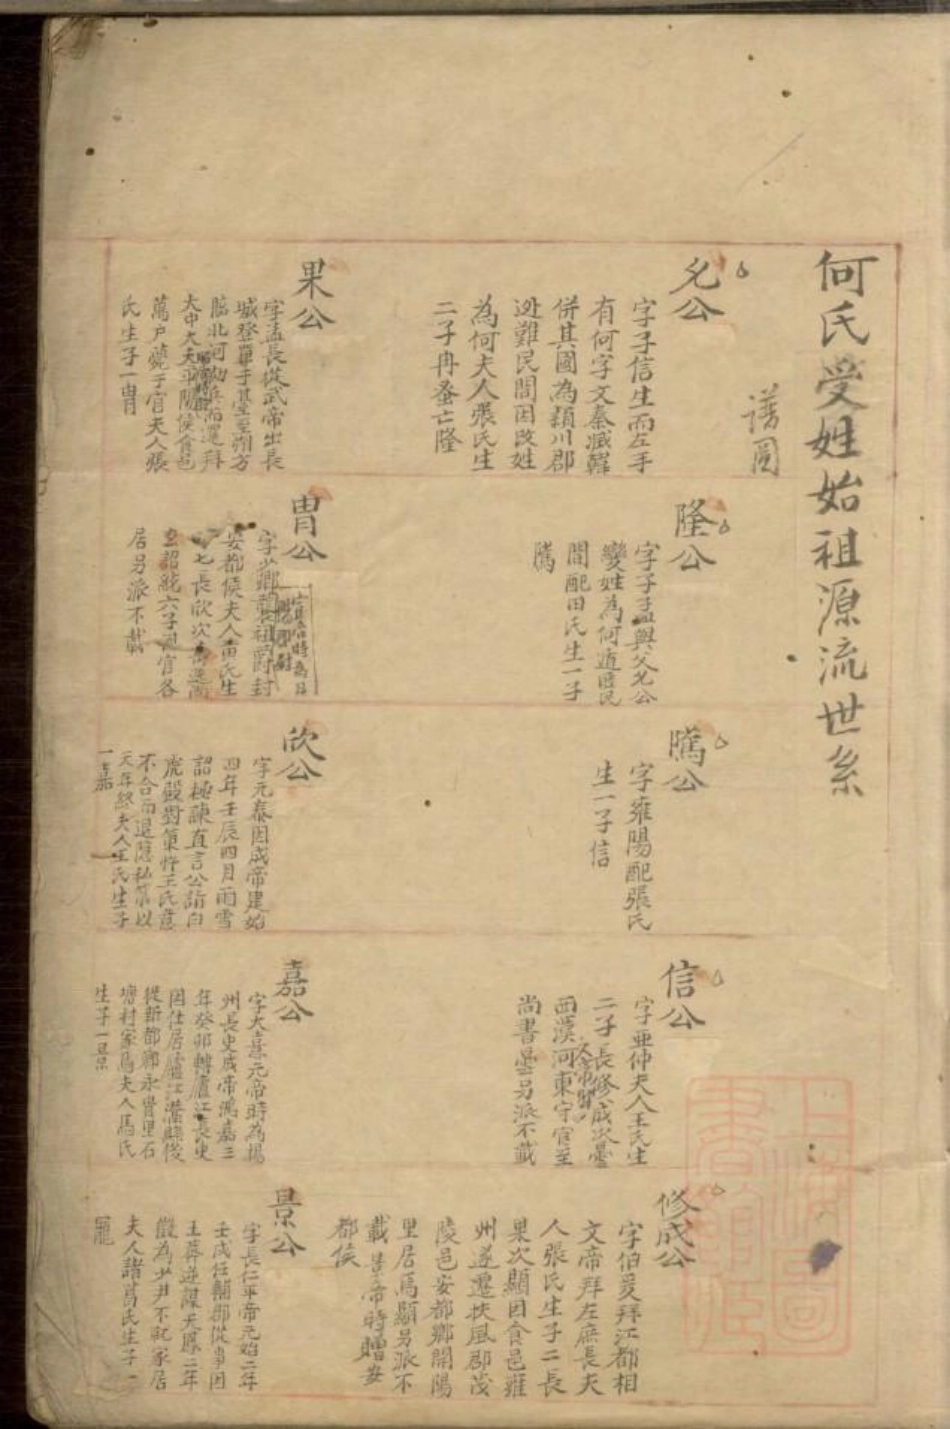 何氏受姓始祖源流世系
譜圖
允公
字子信生而左手
有何字文秦滅韓
併其國為潁川郡
迯難民間因改姓
為何夫人張氏生
二子冉蚤亡隆
隆公
字子孟與父允公
變姓為何遁匿民
間配田氏生一子
騰
騰公
字雍陽配張氏
生一子信
信公
字亜仲夫人王氏生
二子長修成次曇
文帝時
西漢河東守官至
尚書曇另派不載
修成公
字伯爰拜江都相
文帝拜左庶長夫
人張氏生子二長
果次顯因食邑雍
州遂遷扶風郡茂
陵邑安都鄉開陽
里居焉顯另派不
載景帝時贈安
都侯
果公
字孟長從武帝出長
城登單于臺至朔方
臨北河 兵而還拜
大中大夫平陽侯食邑
萬户薨于官夫人張
氏生子一胄
胄公
宣帝時為
字少卿襲祖爵封
安都侯夫人 氏生
子七長欣次
詔統六子 官各
居另派不載
欣公
字元泰因成帝建始
四年壬辰四月雨雪
詔極諫直言公詣白
虎殿對策忤王氏意
不合而退隱私第以
天年終夫人王氏生子
一嘉
嘉公
字大嘉元帝時為揚
州長史成帝鴻嘉三
年癸卯轉廬江長史
因仕居廬江灊縣後
從新都鄉永貴里石
塘村家焉夫人馬氏
生子一景
景公
字長仁平帝元始二年
壬戌任輔郡從事因
王莽逆謀天鳳二年
徵為少尹不就家居
夫人諸葛氏生子一
寵